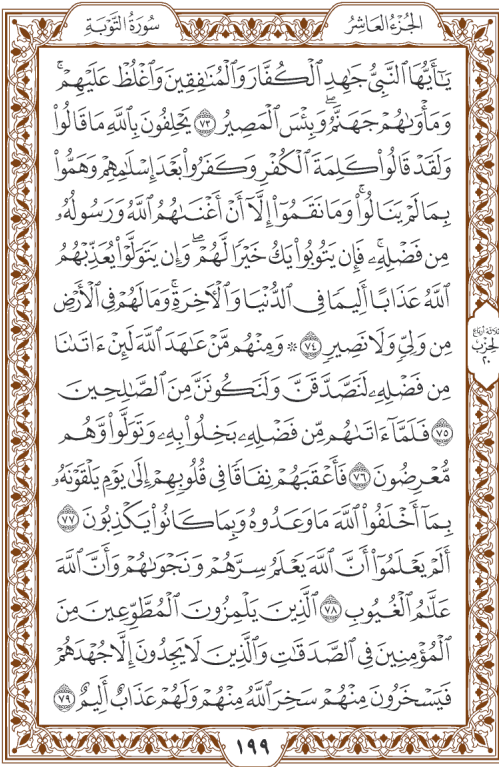 الجُزْءُ العَاشِرُ
سُورَةُ التَّوْبَةِ
يَـٰٓأَيُّهَا ٱلنَّبِىُّ جَـٰهِدِ ٱلْكُفَّارَ وَٱلْمُنَـٰفِقِينَ وَٱغْلُظْ عَلَيْهِمْ ۚ
وَمَأْوَىٰهُمْ جَهَنَّمُ ۖ وَبِئْسَ ٱلْمَصِيرُ ٧٣ يَحْلِفُونَ بِٱللَّهِ مَا قَالُوا۟
وَلَقَدْ قَالُوا۟ كَلِمَةَ ٱلْكُفْرِ وَكَفَرُوا۟ بَعْدَ إِسْلَـٰمِهِمْ وَهَمُّوا۟
بِمَا لَمْ يَنَالُوا۟ ۚ وَمَا نَقَمُوٓا۟ إِلَّآ أَنْ أَغْنَىٰهُمُ ٱللَّهُ وَرَسُولُهُۥ
مِن فَضْلِهِۦ ۚ فَإِن يَتُوبُوا۟ يَكُ خَيْرًا لَّهُمْ ۖ وَإِن يَتَوَلَّوْا۟ يُعَذِّبْهُمُ
ٱللَّهُ عَذَابًا أَلِيمًا فِى ٱلدُّنْيَا وَٱلْـَٔاخِرَةِ ۚ وَمَا لَهُمْ فِى ٱلْأَرْضِ
مِن وَلِىٍّ وَلَا نَصِيرٍ ٧٤ ۞ وَمِنْهُم مَّنْ عَـٰهَدَ ٱللَّهَ لَئِنْ ءَاتَىٰنَا
مِن فَضْلِهِۦ لَنَصَّدَّقَنَّ وَلَنَكُونَنَّ مِنَ ٱلصَّـٰلِحِينَ
٧٥ فَلَمَّآ ءَاتَىٰهُم مِّن فَضْلِهِۦ بَخِلُوا۟ بِهِۦ وَتَوَلَّوا۟ وَّهُم
مُّعْرِضُونَ ٧٦ فَأَعْقَبَهُمْ نِفَاقًا فِى قُلُوبِهِمْ إِلَىٰ يَوْمِ يَلْقَوْنَهُۥ
بِمَآ أَخْلَفُوا۟ ٱللَّهَ مَا وَعَدُوهُ وَبِمَا كَانُوا۟ يَكْذِبُونَ ٧٧
أَلَمْ يَعْلَمُوٓا۟ أَنَّ ٱللَّهَ يَعْلَمُ سِرَّهُمْ وَنَجْوَىٰهُمْ وَأَنَّ ٱللَّهَ
عَلَّـٰمُ ٱلْغُيُوبِ ٧٨ ٱلَّذِينَ يَلْمِزُونَ ٱلْمُطَّوِّعِينَ مِنَ
ٱلْمُؤْمِنِينَ فِى ٱلصَّدَقَـٰتِ وَٱلَّذِينَ لَا يَجِدُونَ إِلَّا جُهْدَهُمْ
فَيَسْخَرُونَ مِنْهُمْ سَخِرَ ٱللَّهُ مِنْهُمْ وَلَهُمْ عَذَابٌ أَلِيمٌ ٧٩
ثلاثة أرباع
الحزب
٢٠
١٩٩